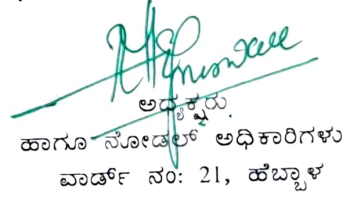 ಅಧ್ಯಕ್ಷರು
ಹಾಗೂ ನೋಡಲ್ ಅಧಿಕಾರಿಗಳು
ವಾರ್ಡ್ ನಂ: 21, ಹೆಬ್ಬಾಳ